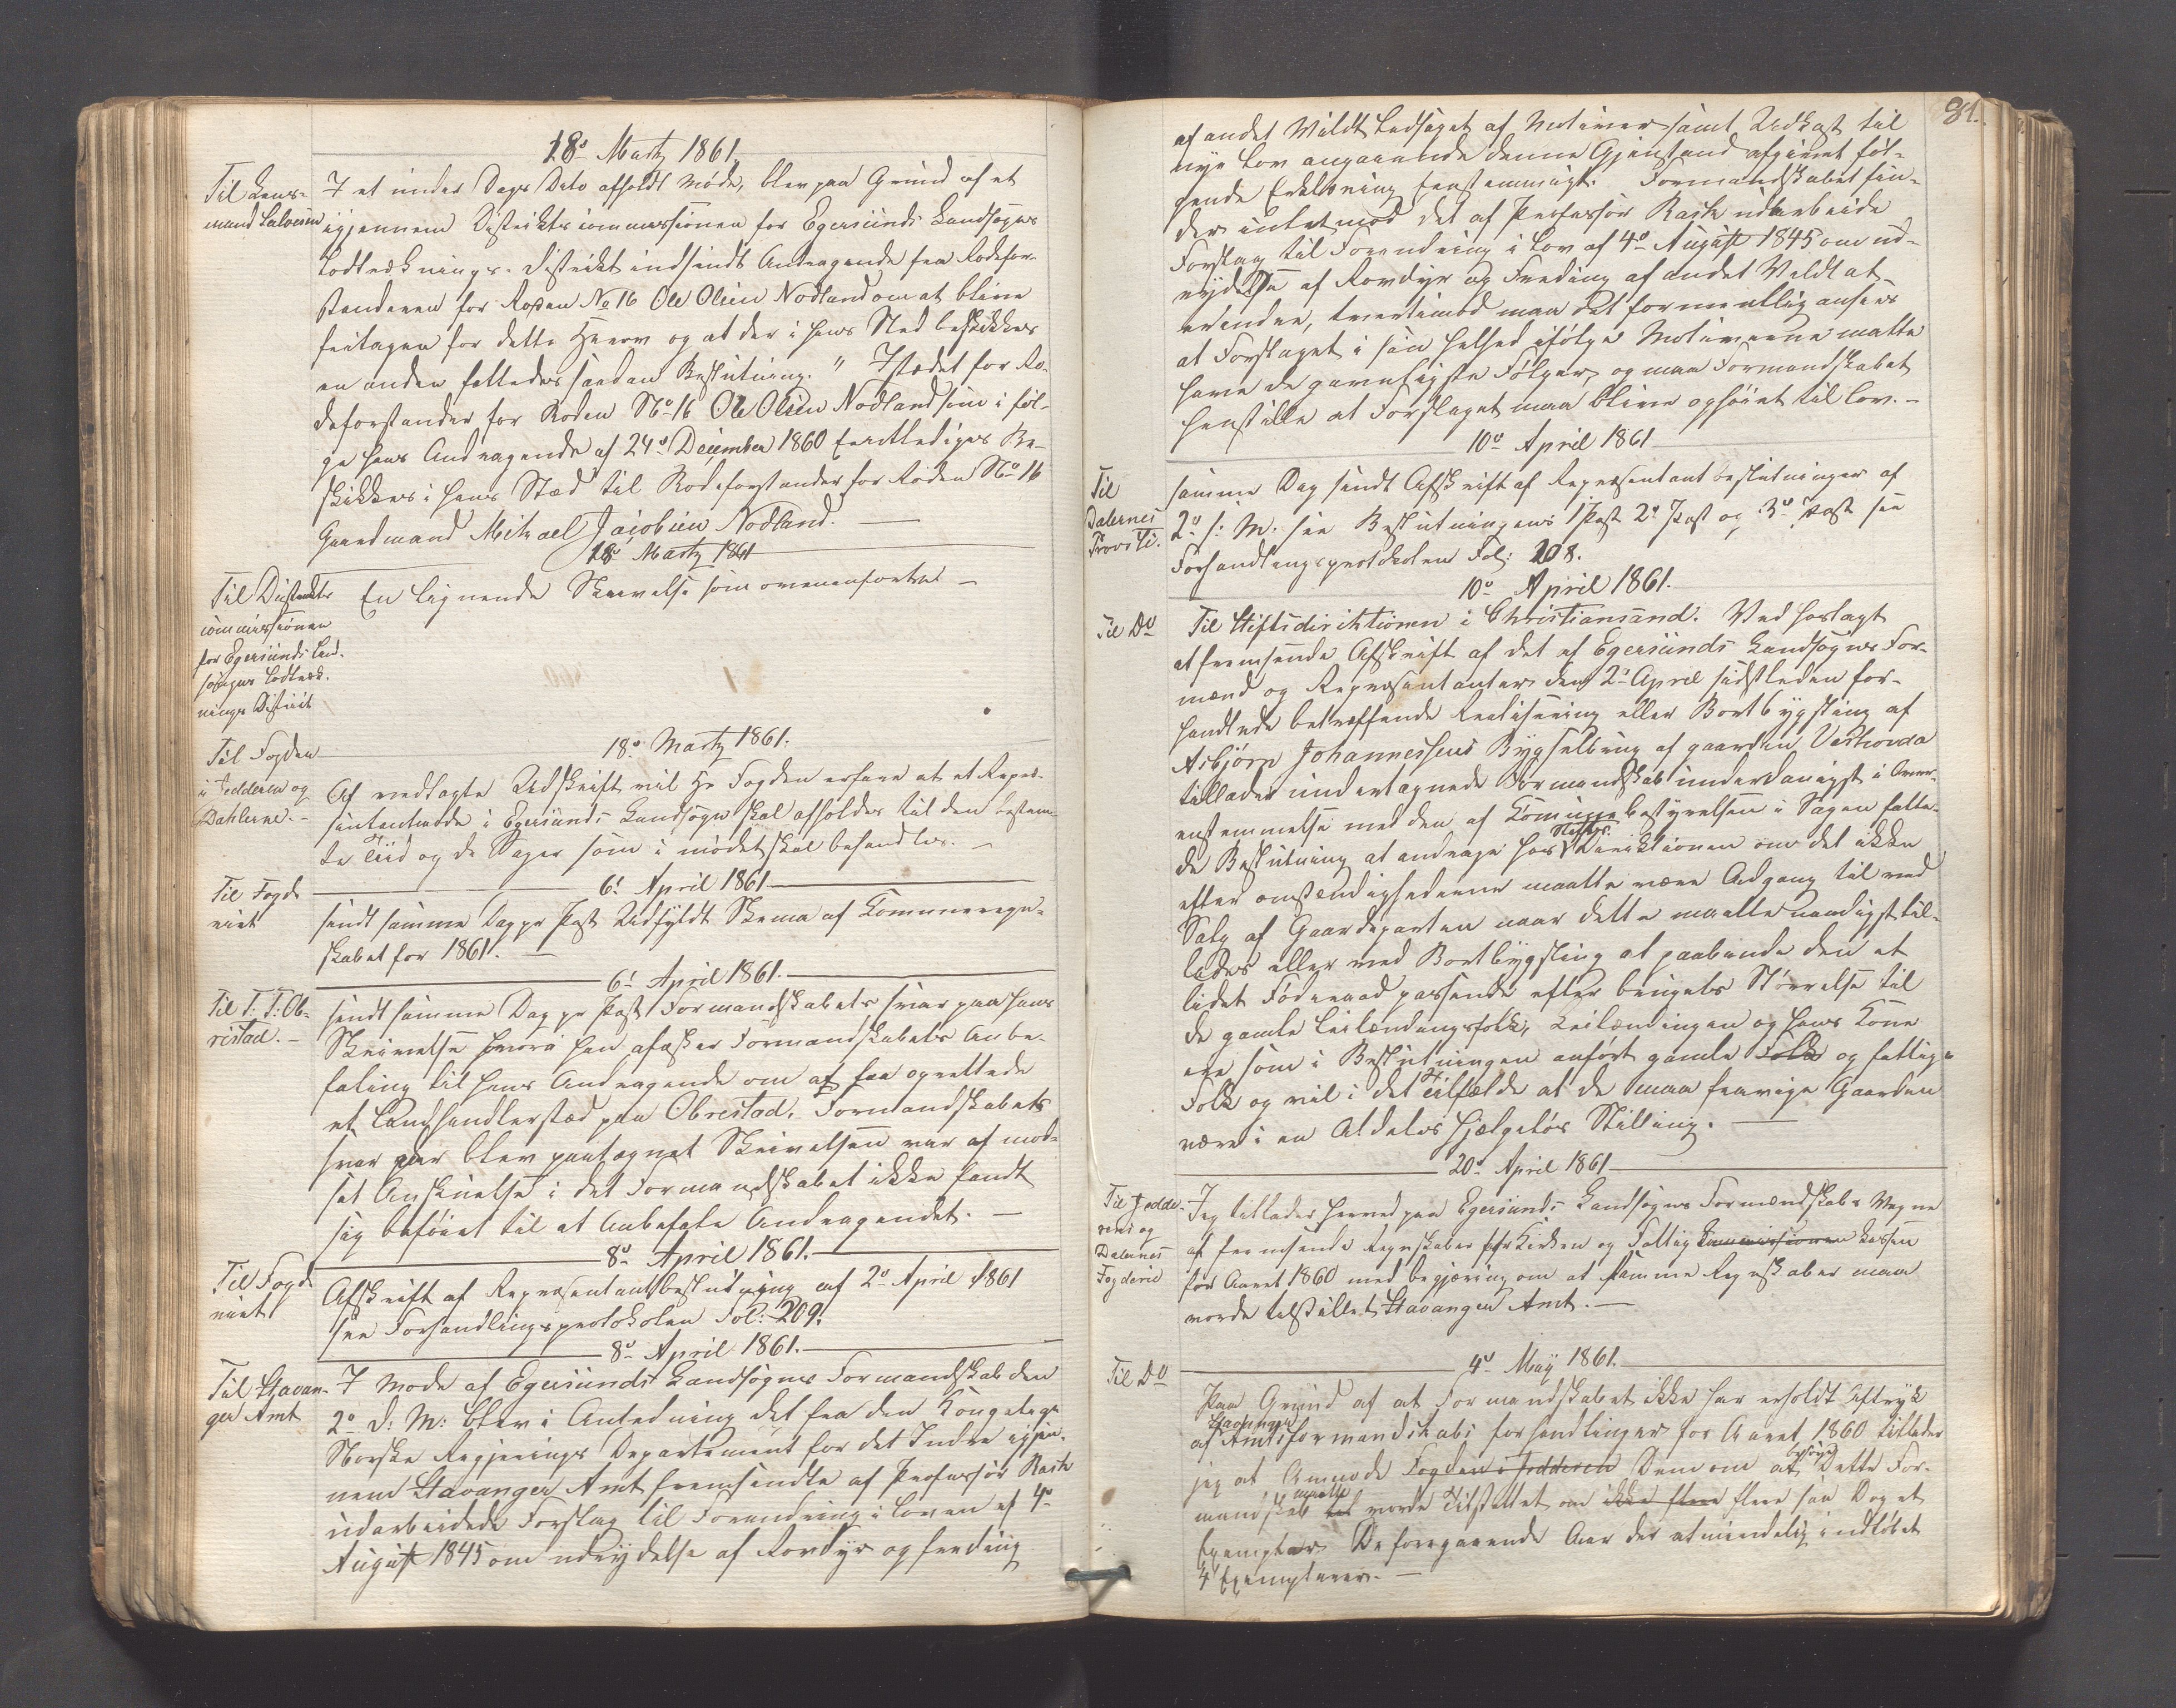 18de Martz 1861.
Til Lens-
mand Salvesen
I et under Dags Dato afholdt Møde, blev paa Grund af et
igjennem Distriktscommissionen for Egersunds Landsogns
Lodtræknings-Distrikt indsendt Andragende fra Rodefor-
standeren for Roden No 16 Ole Olsen Nodland om at blive
fritagen for dette Hverv og at der i hans Sted beskikkes
en anden fattedes saadan Beslutning. " Istædet for Ro-
deforstander for Roden No 16 Ole Olsen Nodland som i føl-
ge hans Andragende af 24de December 1860 entlediges Be-
skikkes i hans Stæd til Rodeforstander for Roden No 16
Gaardmand Mikael Jacobsen Nodland. —
18de Martz 1861
Til Distrikts
commissionen
for Egersunds Land-
sogns Lodtræk-
nings Distrikt
En lignende Skrivelse som ovenanførte —
18de Martz 1861.
Til Fogden
i Jedderen og
Dahlerne. -
Af vedlagte Udskrift vil Hr Fogden erfare at et Repræ-
sentantmøde i Egersunds Landsogn skal afholdes til den bestem-
te Tiid og de Sager som i mødet skal behandles. —
6t April 1861
Til Fogde
riet
sendt samme Dag pr Post Udfyldt Skema af Communeregn-
skabet for 1861. —
6t April 1861.
Til T: T: Ob-
restad. -
sendt samme Dag pr Post Formandskabets svar paa hans
Skrivelse hvori han afæsker Formandskabets Anbe-
faling til hans Andragende om at faa oprettede
et Landhandlerstæd paa Obrestad. Formandskabets
svar der blev paategnet Skrivelsen var af mod-
sat Anskuelse i det Formandskabet ikke fandt
sig beføiet til at Anbefale Andragendet. —
8de April 1861.
Til Fogde
riet
Afskrift af Repræsentantbeslutning af 2de April 1861
see Forhandlingsprotokolen Fol: 209.
8de April 1861.
Til Stavan-
ger Amt
I Møde af Egersunds Landsogns Formandskab den
2de d: M: blev i Anledning det fra den Kongelige
Norske Regjerings Departement for det Indre igjen-
nem Stavanger Amt fremsendte af Professor Rasch
udarbeidede Forslag til Forandring i Loven af 4de
August 1845 om udrydelse af Rovdyr og freding
81.
af andet Vildt ledsaget af Motiver samt Udkast til
nye Lov angaaende denne Gjenstand afgivet føl-
gende Erklæring Eenstemmigt. Formandskabet fin-
der intet mod det af Professor Rasch udarbeide
Forslag til Forandring i Lov af 4de August 1845 om ud-
rydelse af Rovdyr og Freding af andet Vildt at
erindre, tvertimod maa det formentlig ansees
at Forslaget i sin helhed ifølge Motiverne matte
have de gavnligste Følger, og maa Formandskabet
henstille at Forslaget maa blive ophøiet til Lov. -
10de April 1861
Til
Dalernes
Provsti.
samme Dag sendt Afskrift af Repræsentantbeslutninger af
2de d: M. see Beslutningens 1 Post 2de Post og 3de Post see
Forhandlingsprotokolen Fol: 208.
10de April 1861.
Til Do
Til Stiftsdirektionen i Christiansand. Ved hoslagt
at fremsende Afskrift af det af Egersunds Landsogns For-
mænd og Repræsentanter den 2de April sidstleden for-
handlede betræffende Realisering eller Bortbygsling af
Asbjørn Johannessens Bygselbrug af gaarden Veshovda
tillader undertegnede Formandskab underdanigst i Over-
enstemmelse med den af Communebestyrelsen i Sagen fatte-
de Beslutning at andrage hos Stifts Direktionen om det ikke
efter omstændighederne maatte være Adgang til ved
Salg af Gaardsparten naar dette maatte naadigst til-
lades eller ved Bortbygsling at paabinde den et
lidet Føderaad passende efter brugets Størrelse til
de gamle Leilændingsfolk; Leilændingen og hans Kone
ere som i Beslutningen anført gamle Folk og fattige
Folk og vil i det Tilfælde at de maa fravige Gaarden
være i en Aldeles Hjælpeløs Stilling. —
20de April 1861
Til Jedde-
rens og
Dalernes
Fogderie
Jeg tillader herved paa Egersunds Landsogns Formændskabs Vegne
at fremsende Regnskaber for Kirken og Fattig Commissionen kassen
for Aaret 1860 med begjæring om at samme Regnskaber maa
vorde tilstillet Stavanger Amt. —
4de May 1861.
Til Do
Paa Grund af at Formandskabet ikke har erholdt Aftryk
af Stavanger Amtsformandskabs forhandlinger for Aaret 1860 tillader
jeg at Anmode Fogden i Jedderen Dem om at Dette For-
mandskab maatte vorde Tilstillet om ikke flere flere saa Dog et
Exemplar. De foregaaende Aar der almindelig indløbet
4 Exemplarer. —